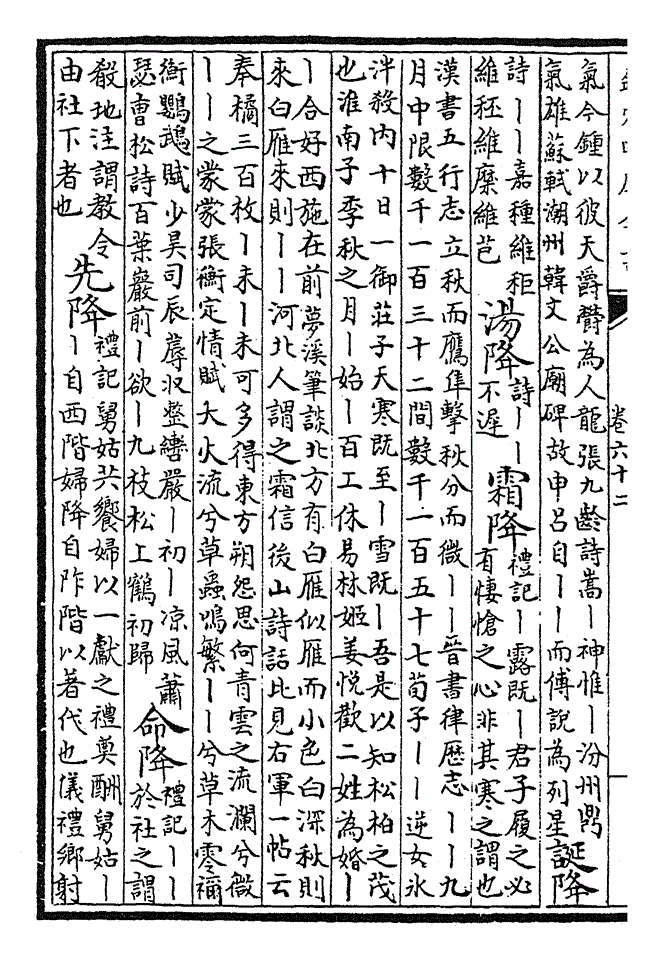 卷六十二
氣今鍾以彼天爵欝為人龍張九齡詩嵩丨神惟丨汾州鼎
氣雄蘇軾潮州韓文公廟碑故申呂自丨丨而傅說為列星
誕降
詩丨丨嘉種維秬
維秠維糜維芑
湯降
詩丨丨
不遲
霜降
禮記丨露既丨君子履之必
有悽愴之心非其寒之謂也
漢書五行志立秋而鷹隼擊秋分而微丨丨晉書律歴志丨丨九
月中限數千一百三十二間數千一百五十七荀子丨丨逆女氷
泮殺内十日一御莊子天寒既至丨雪既丨吾是以知松柏之茂
也淮南子季秋之月丨始丨百工休易林姬姜悦歡二姓為婚丨
丨合好西施在前夢溪筆談北方有白雁似雁而小色白深秋則
來白雁來則丨丨河北人謂之霜信後山詩話比見右軍一帖云
奉橘三百枚丨未丨未可多得東方朔怨思何青雲之流瀾兮微
丨丨之蒙蒙張衡定情賦大火流兮草蟲鳴繁丨丨兮草木零禰
衡鸚鵡賦少昊司辰蓐収整轡嚴丨初丨凉風蕭
瑟曹松詩百葉巖前丨欲丨九枝松上鶴初歸
命降
禮記丨丨
於社之謂
殽地注謂教令
由社下者也
先降
禮記舅姑共饗婦以一獻之禮奠酬舅姑丨
丨自西階婦降自阼階以著代也儀禮鄉射